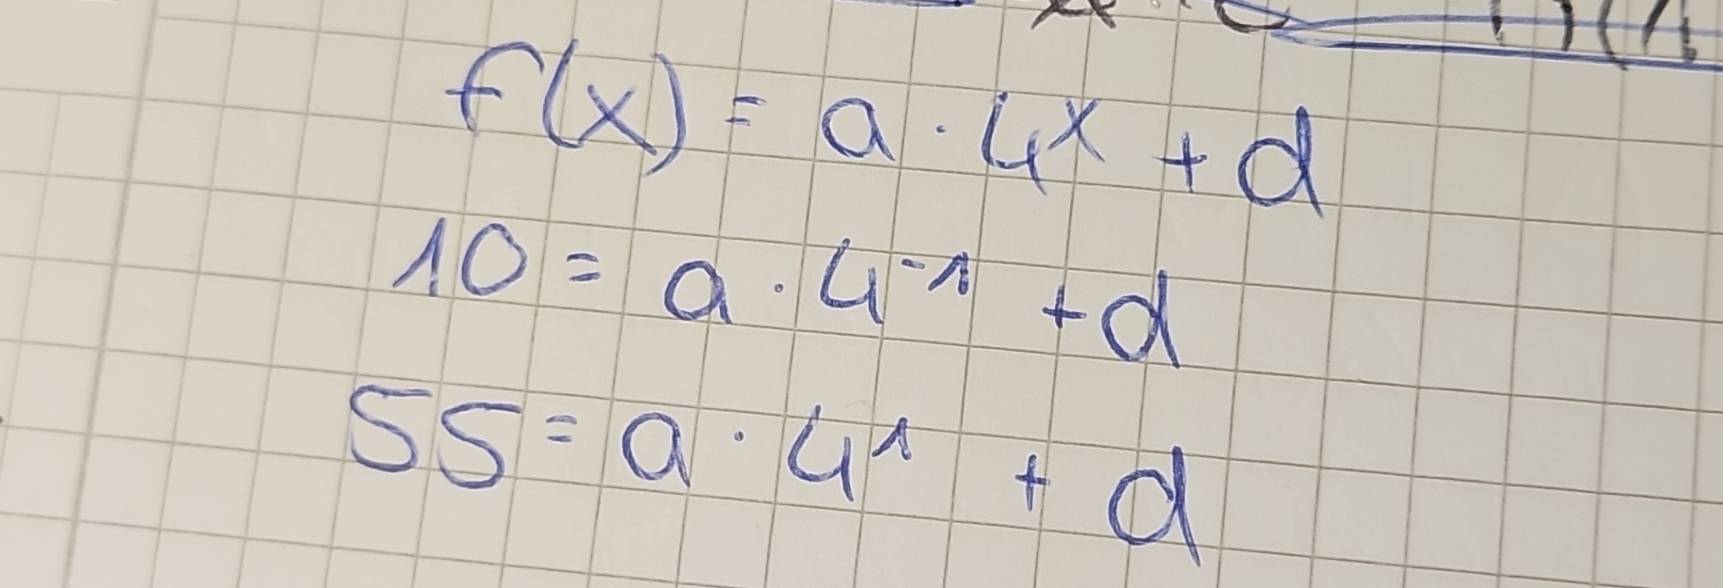 f(x) = a · 4^x + d
10 = a · 4^-1 + d
55 = a · 4^1 + d